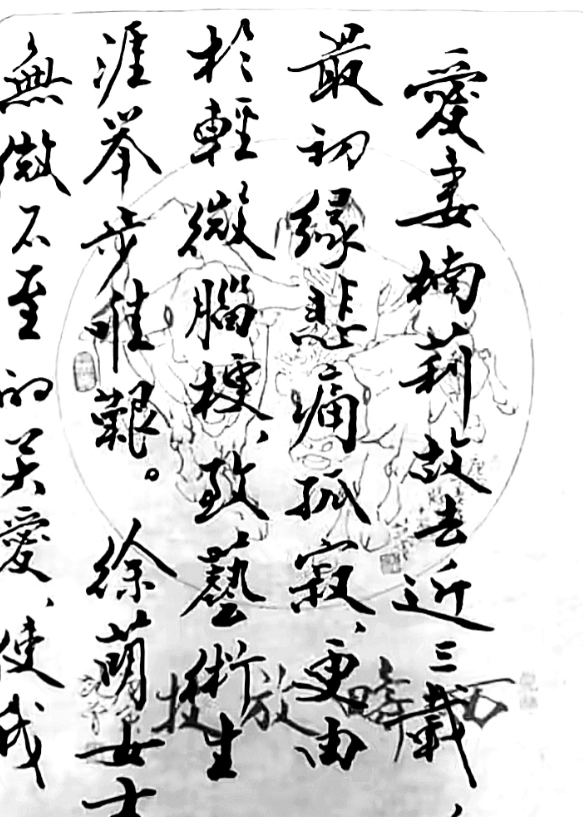 愛妻楠莉故去近三載，
最初緣悲痛孤寂、更由
於輕微腦梗，致藝術生
涯举步唯艱。徐萌女士
無微不至的关愛，使我